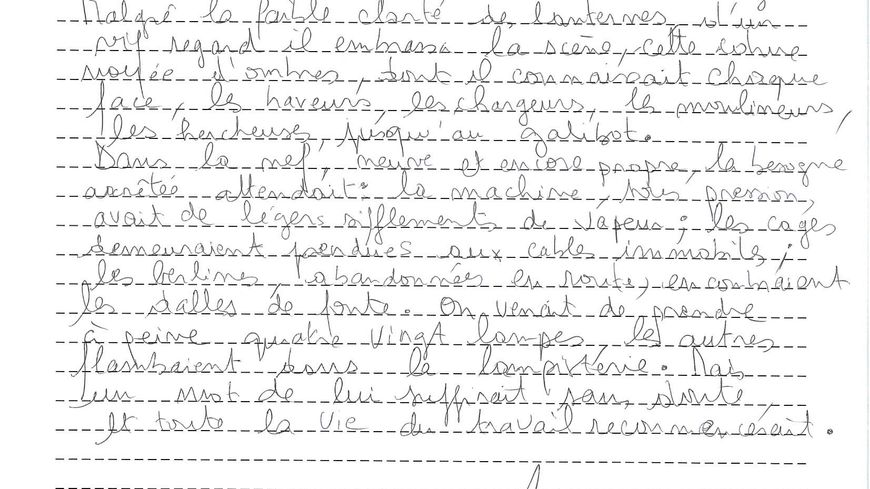 Malgré la faible clarté de lanternes, d'un
vif regard il embrassa la scène, cette cohue
noyée d'ombres, dont il connaissait chaque
face, les haveurs, les chargeurs, les moulineurs,
les hercheuses, jusqu'au galibot.
Dans la nef, neuve et encore propre, la besogne
arrêtée attendait: la machine, sous pression,
avait de légers sifflements de vapeur; les cages
demeuraient pendues aux cable immobile;
les berlines, abandonnées en route, encombraient
les dalles de fonte. On venait de prendre
à peine quatre vingt lampes, les autres
flambaient dans la lampisterie. Mais
un mot de lui suffirait sans doute,
et toute la vie du travail recommencerait.